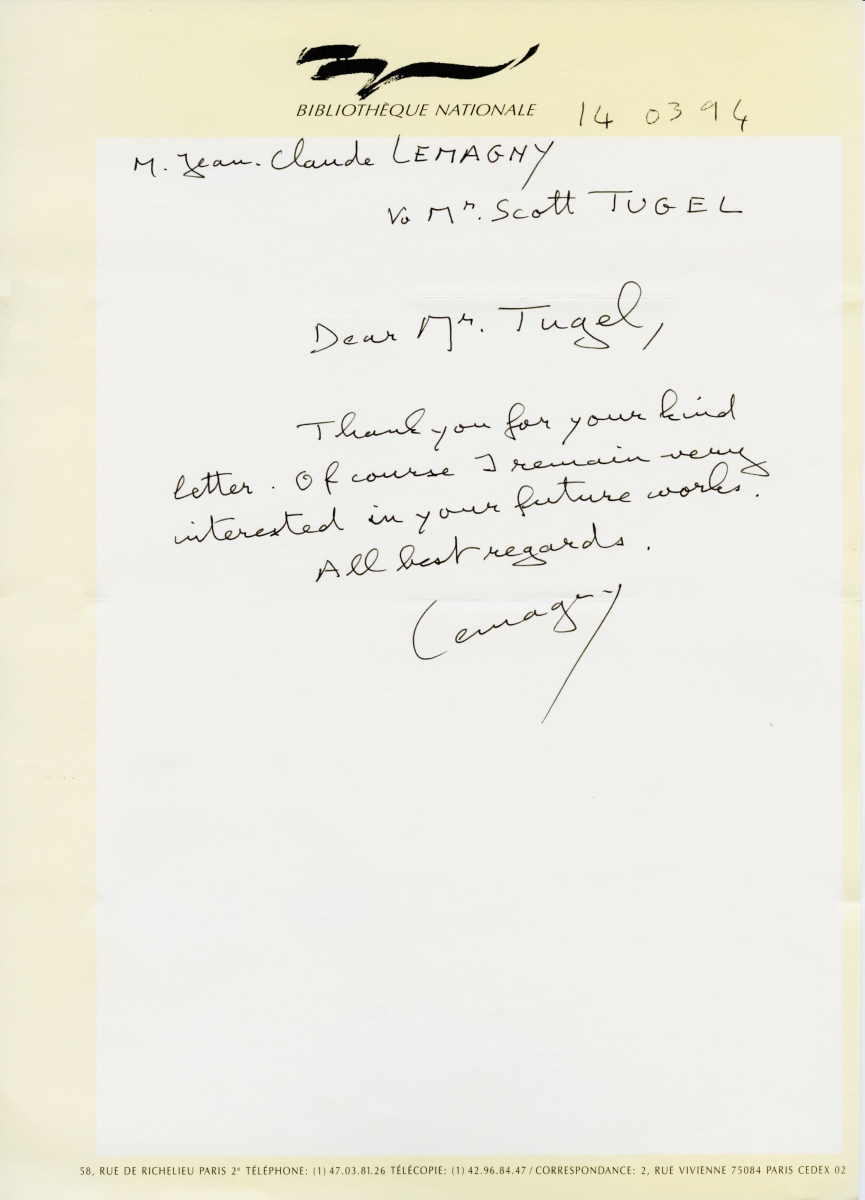 BIBLIOTHÈQUE NATIONALE
14 03 94
M. Jean-Claude LEMAGNY
Mr. Scott TUGEL
Dear Mr. Tugel,
Thank you for your kind
letter. Of course I remain very
interested in your future works.
All best regards.
Lemagny
58, RUE DE RICHELIEU PARIS 2e TÉLÉPHONE: (1) 47.03.81.26 TÉLÉCOPIE: (1) 42.96.84.47 / CORRESPONDANCE: 2, RUE VIVIENNE 75084 PARIS CEDEX 02